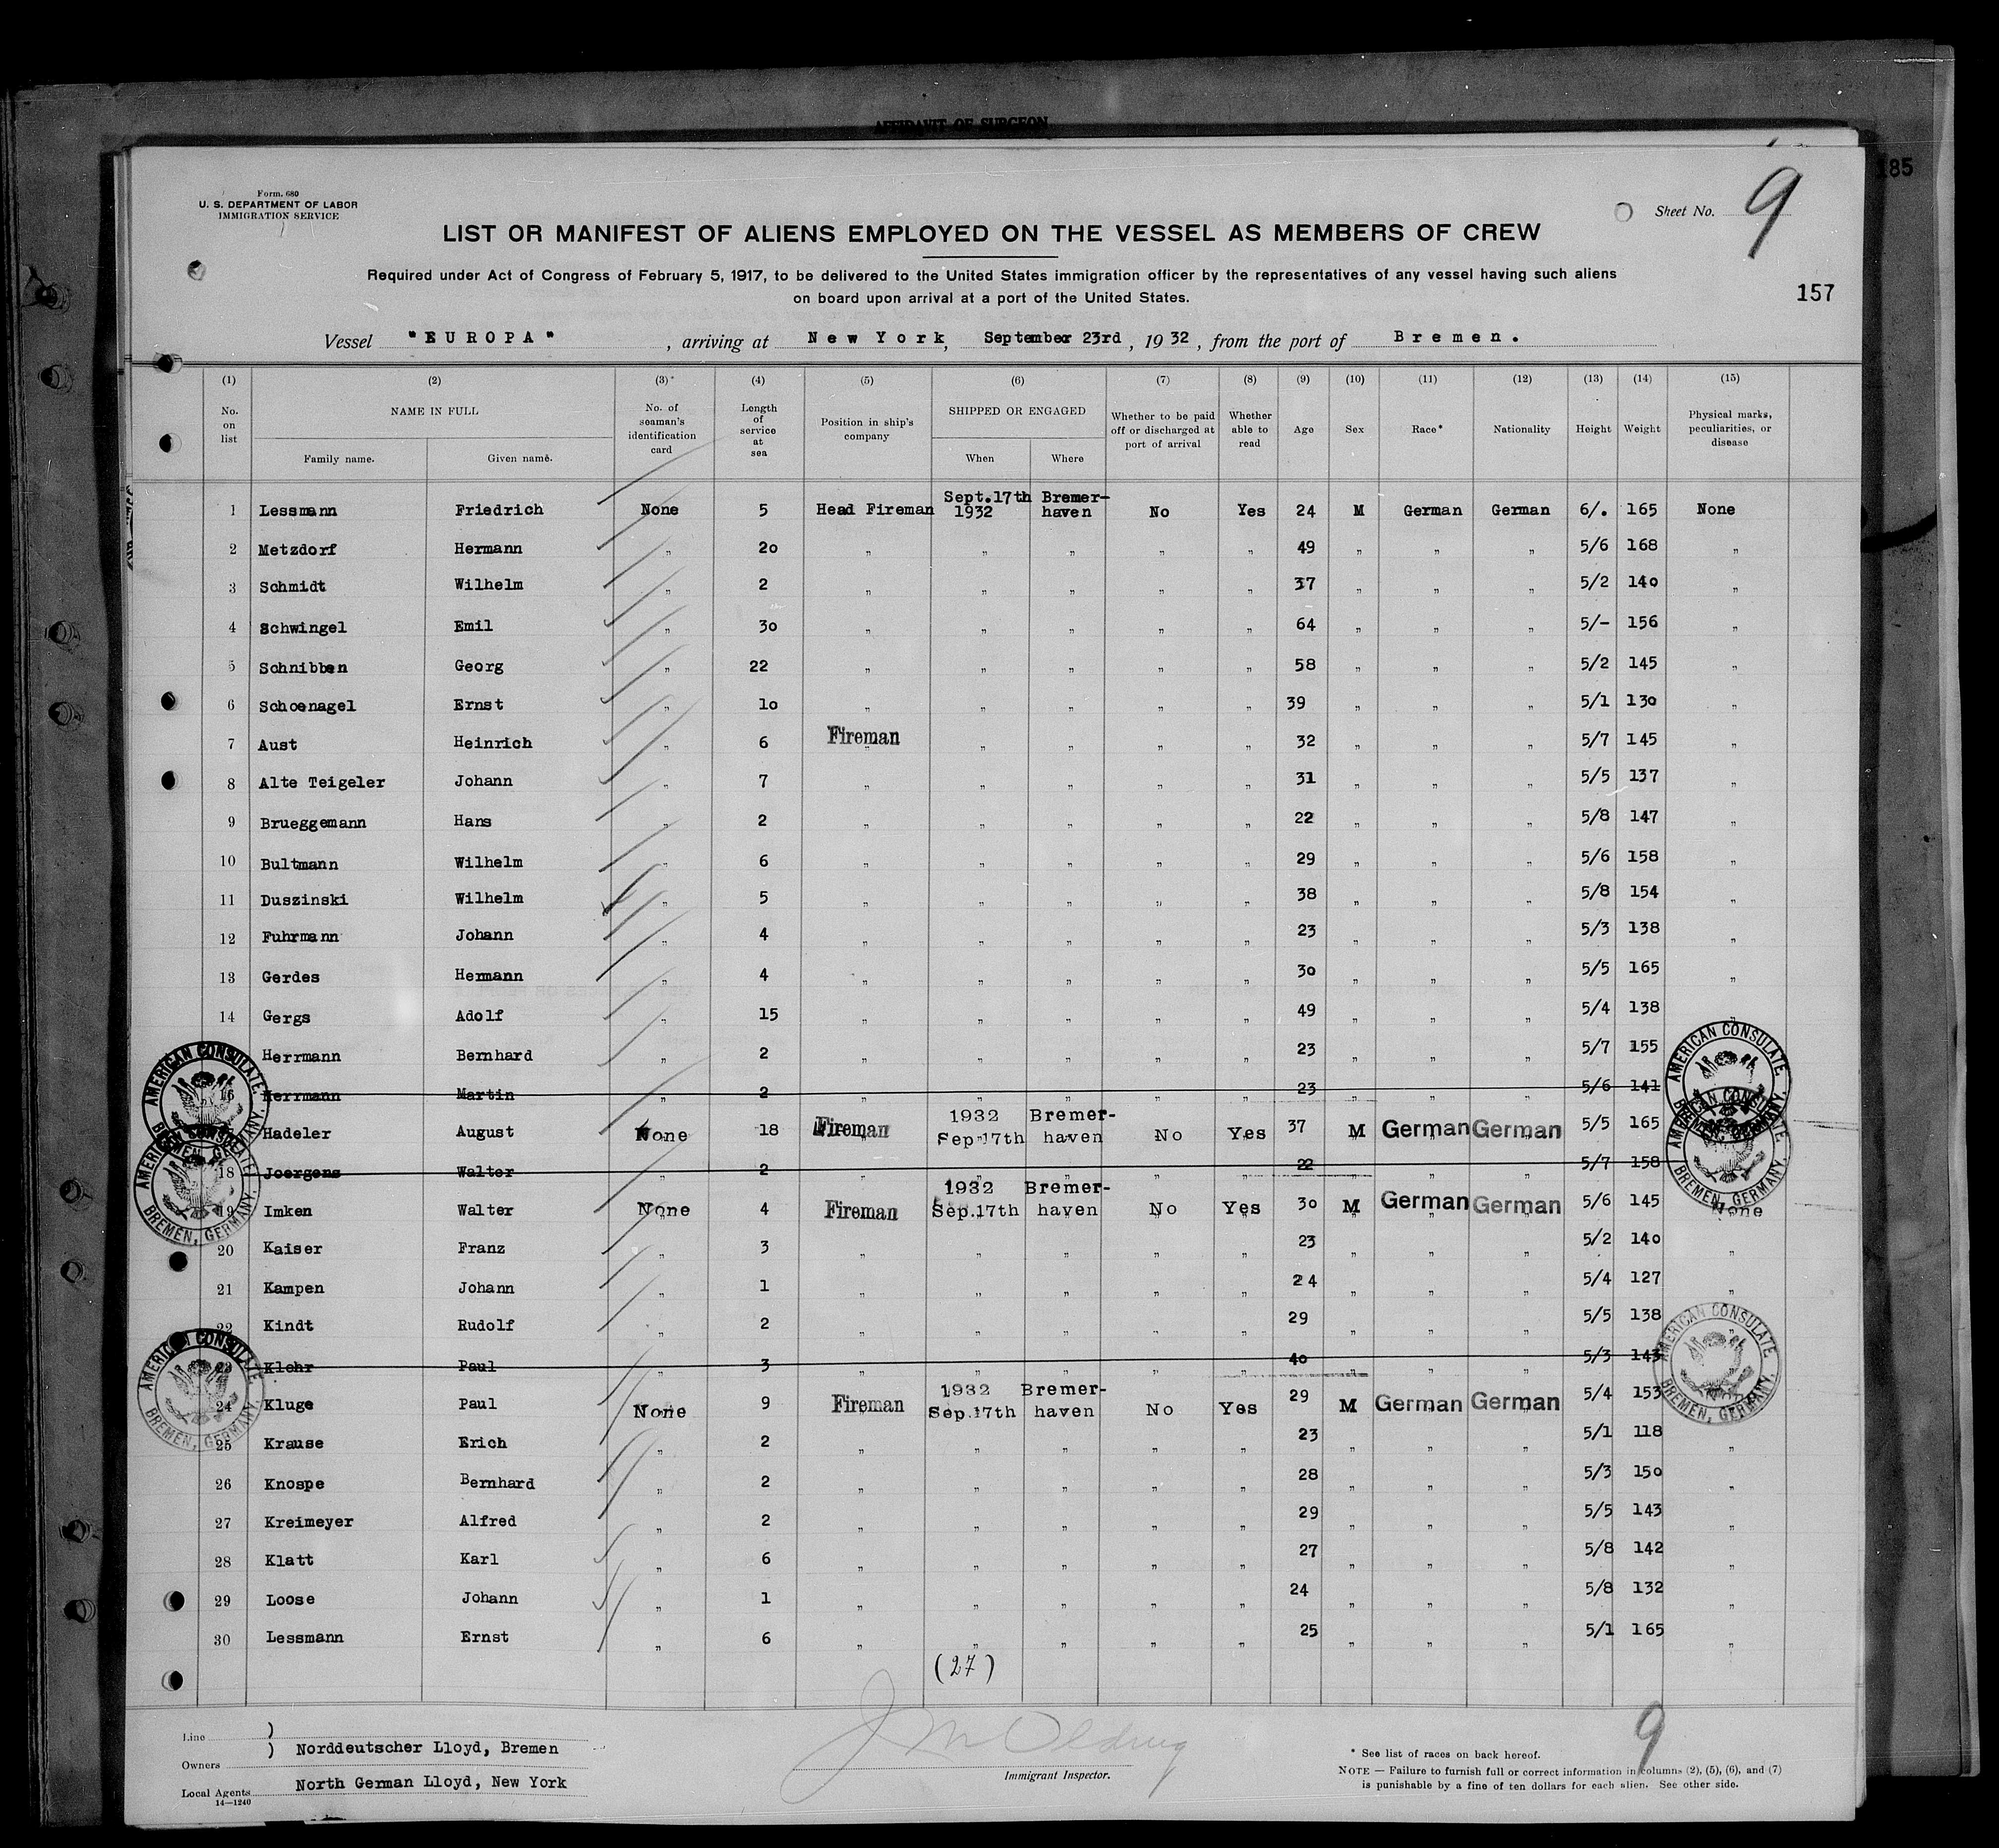 AFFIDAVIT OF SURGEON
185
Form. 680
U. S. DEPARTMENT OF LABOR
IMMIGRATION SERVICE
Sheet No. 9
LIST OR MANIFEST OF ALIENS EMPLOYED ON THE VESSEL AS MEMBERS OF CREW
Required under Act of Congress of February 5, 1917, to be delivered to the United States immigration officer by the representatives of any vessel having such aliens
on board upon arrival at a port of the United States.
157
Vessel "EUROPA", arriving at New York, September 23rd, 1932, from the port of Bremen.
(1) (2) (3)* (4) (5) (6) (7) (8) (9) (10) (11) (12) (13) (14) (15)
No. on list
NAME IN FULL
Family name. Given name.
No. of seaman's identification card
Length of service at sea
Position in ship's company
SHIPPED OR ENGAGED
When Where
Whether to be paid off or discharged at port of arrival
Whether able to read
Age
Sex
Race*
Nationality
Height
Weight
Physical marks, peculiarities, or disease
1 Lessmann Friedrich None 5 Head Fireman Sept.17th 1932 Bremer-haven No Yes 24 M German German 6/. 165 None
2 Metzdorf Hermann " 20 " " " " " 49 " " " 5/6 168 "
3 Schmidt Wilhelm " 2 " " " " " 37 " " " 5/2 140 "
4 Schwingel Emil " 30 " " " " " 64 " " " 5/- 156 "
5 Schnibben Georg " 22 " " " " " 58 " " " 5/2 145 "
6 Schoenagel Ernst " 10 " " " " " 39 " " " 5/1 130 "
7 Aust Heinrich " 6 Fireman " " " " 32 " " " 5/7 145 "
8 Alte Teigeler Johann " 7 " " " " " 31 " " " 5/5 137 "
9 Brueggemann Hans " 2 " " " " " 22 " " " 5/8 147 "
10 Bultmann Wilhelm " 6 " " " " " 29 " " " 5/6 158 "
11 Duszinski Wilhelm " 5 " " " " " 38 " " " 5/8 154 "
12 Fuhrmann Johann " 4 " " " " " 23 " " " 5/3 138 "
13 Gerdes Hermann " 4 " " " " " 30 " " " 5/5 165 "
14 Gergs Adolf " 15 " " " " " 49 " " " 5/4 138 "
Herrmann Bernhard " 2 " " " " " 23 " " " 5/7 155
16 Herrmann Martin " 2 " " " " " 23 " " " 5/6 141
Hadeler August None 18 Fireman 1932 Sep.17th Bremer-haven No Yes 37 M German German 5/5 165
18 Joergens Walter " 2 " " " " " 22 " " " 5/7 158
19 Imken Walter None 4 Fireman 1932 Sep.17th Bremer-haven No Yes 30 M German German 5/6 145 None
20 Kaiser Franz " 3 " " " " " 23 " " " 5/2 140 "
21 Kampen Johann " 1 " " " " " 24 " " " 5/4 127 "
22 Kindt Rudolf " 2 " " " " " 29 " " " 5/5 138
23 Klehr Paul " 3 " " " " " 40 " " " 5/3 143
24 Kluge Paul None 9 Fireman 1932 Sep.17th Bremer-haven No Yes 29 M German German 5/4 153 None
25 Krause Erich " 2 " " " " " 23 " " " 5/1 118 "
26 Knospe Bernhard " 2 " " " " " 28 " " " 5/3 150 "
27 Kreimeyer Alfred " 2 " " " " " 29 " " " 5/5 143 "
28 Klatt Karl " 6 " " " " " 27 " " " 5/8 142 "
29 Loose Johann " 1 " " " " " 24 " " " 5/8 132 "
30 Lessmann Ernst " 6 " " " " " 25 " " " 5/1 165 "
(27)
AMERICAN CONSULATE. BREMEN, GERMANY.
AMERICAN CONSULATE. BREMEN, GERMANY.
AMERICAN CONSULATE. BREMEN, GERMANY.
AMERICAN CONSULATE. BREMEN, GERMANY.
AMERICAN CONSULATE. BREMEN, GERMANY.
AMERICAN CONSULATE. BREMEN, GERMANY.
Line )
Owners ) Norddeutscher Lloyd, Bremen
Local Agents North German Lloyd, New York
14—1240
Immigrant Inspector.
9
* See list of races on back hereof.
NOTE — Failure to furnish full or correct information in columns (2), (5), (6), and (7)
is punishable by a fine of ten dollars for each alien. See other side.